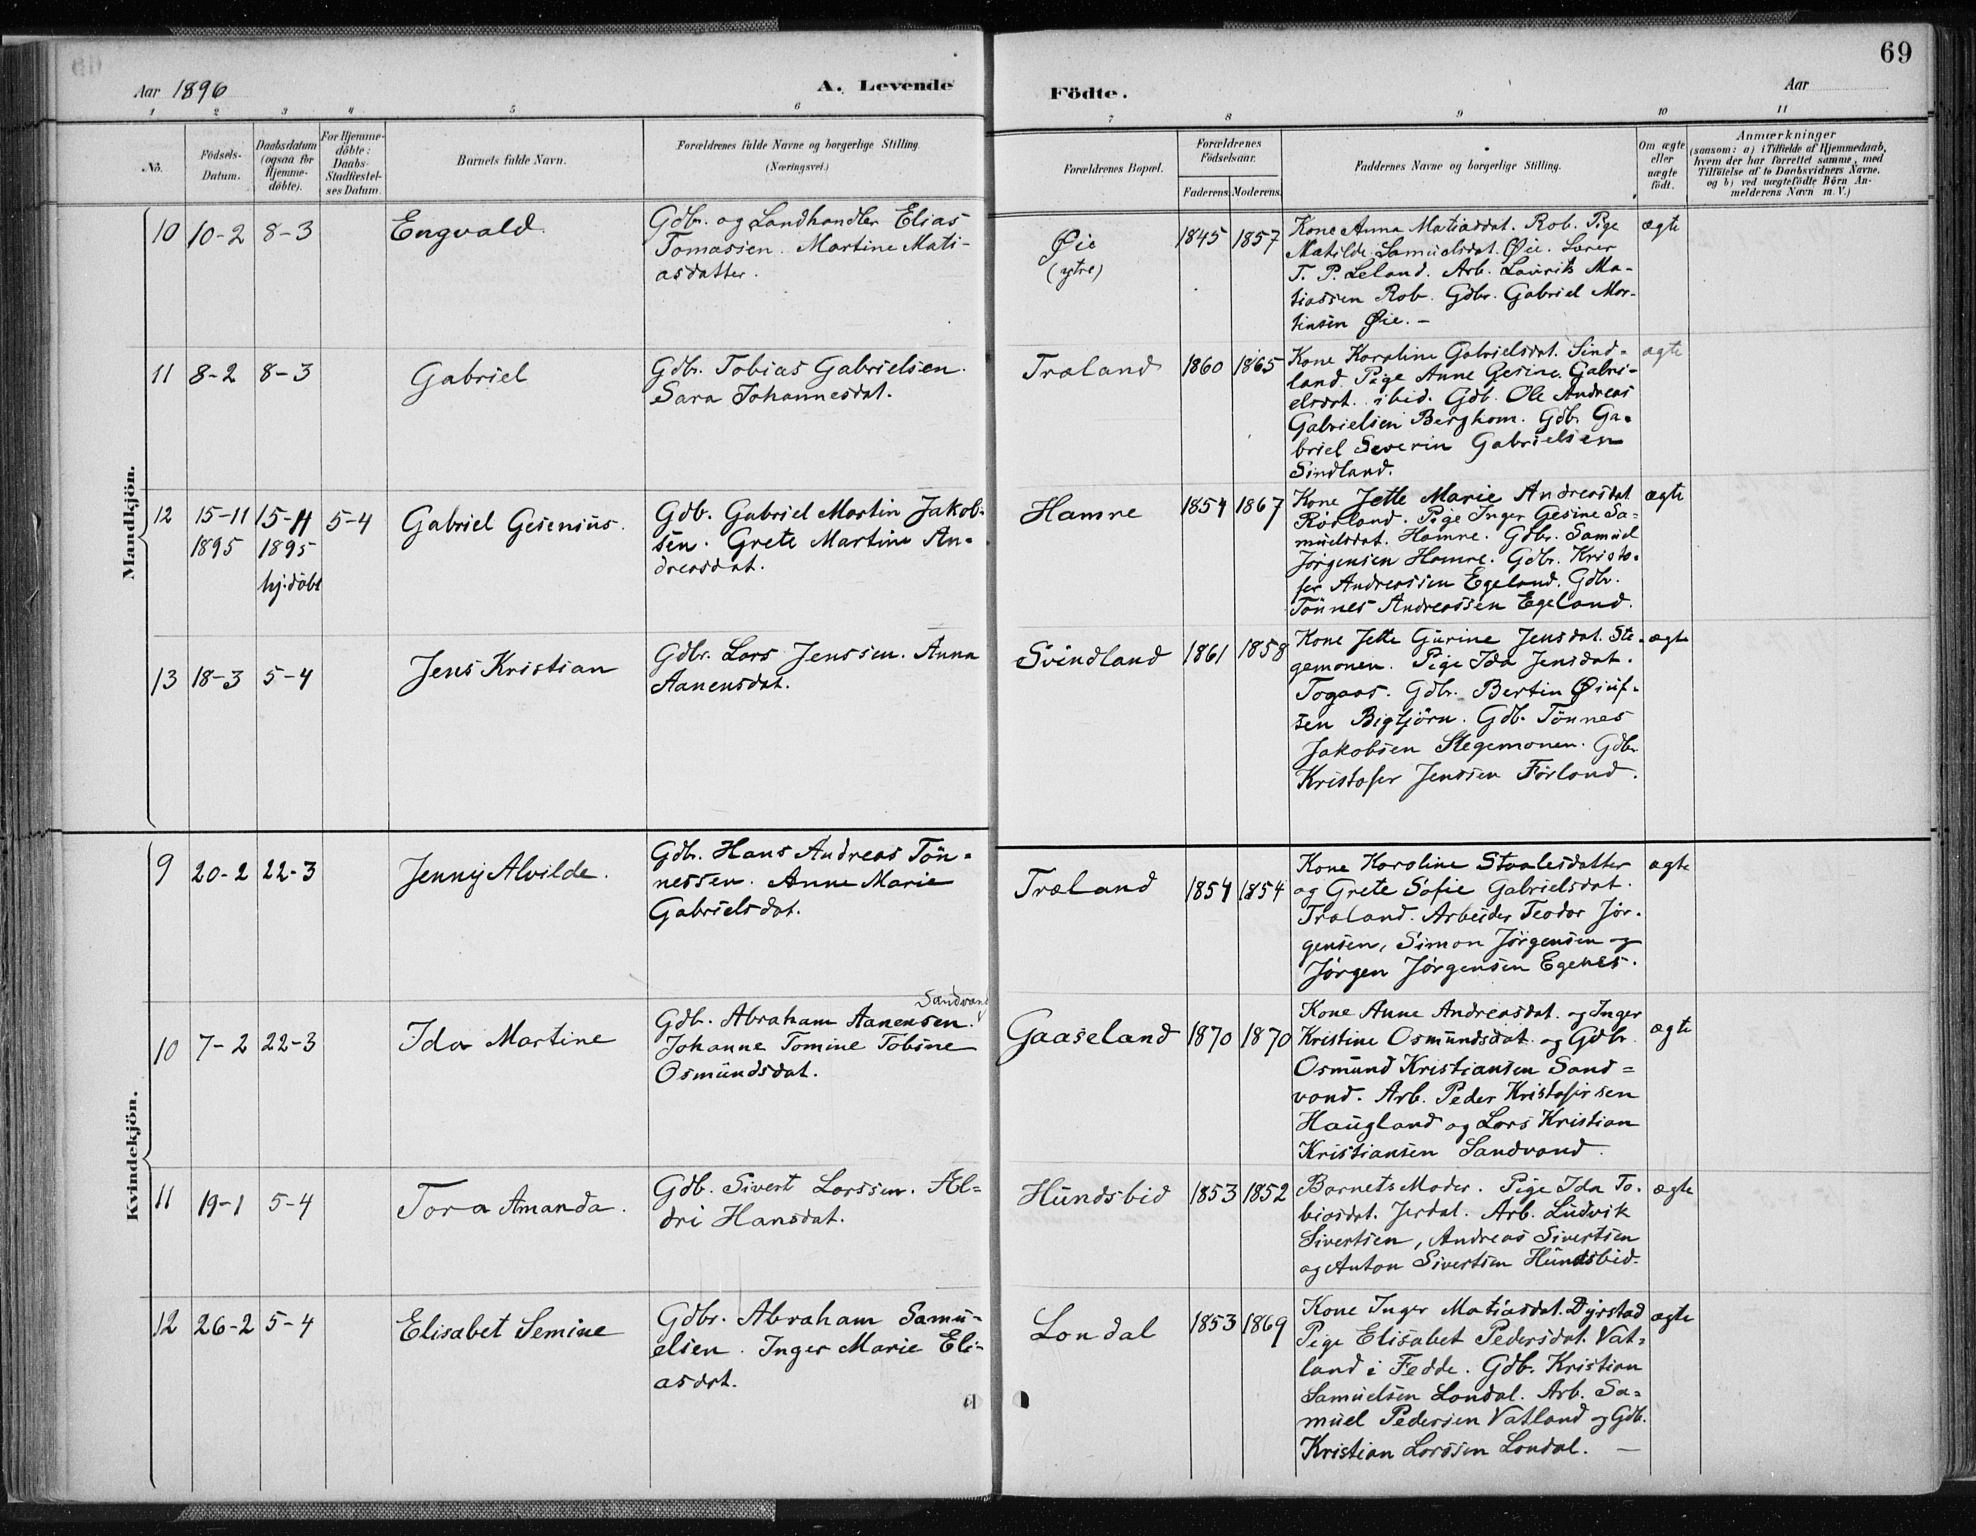 69
Aar 1896
A. Levende Födte.
Aar
1 2 3 4 5 6 7 8 9 10 11
No.
Födsels-Datum.
Daabsdatum (ogsaa for Hjemme-döbte).
For Hjemme-döbte: Daabs-Stadfæstel-ses Datum.
Barnets fulde Navn.
Forældrenes fulde Navne og borgerlige Stilling (Næringsvei.)
Forældrenes Bopæl.
Forældrenes Födselsaar.
Faderens. Moderens.
Faddernes Navne og borgerlige Stilling.
Om ægte eller uægte født.
Anmærkninger
(saasom: a) i Tilfælde af Hjemmedaab,
hvem der har forrettet samme, med
Tilföielse af to Daabsvidners Navne,
og b) ved uægtefödte Börn An-
melderens Navn m. V.)
Mandkjön.
10 10-2 8-3 Engvald
Gdbr. og Landhandler Elias
Tomassen. Martine Mati-
asdatter.
Øie
(ytre)
1845 1857
Kone Anna Matiasdat. Rob. Pige
Matilde Samuelsdat. Øie. Lærer
T. P. Leland. Arb. Laurits Ma-
tiassen Rob. Gdbr. Gabriel Mor-
tinsen Øie. —
ægte
11 8-2 8-3 Gabriel
Gdbr. Tobias Gabrielsen.
Sara Johannesdat.
Træland 1860 1865
Kone Karoline Gabrielsdat. Sind-
land. Pige Anne Gesine Gabri-
elsdat. ibid. Gdb. Ole Andreas
Gabrielsen Berghom. Gdb. Ga-
briel Severin Gabrielsen
Sindland.
ægte
12 15-11 1895 15-11 1895 hj.döbt 5-4 Gabriel Gesenius.
Gdb. Gabriel Martin Jakob-
sen. Grete Martine An-
dreasdat.
Hamre 1854 1867
Kone Jette Marie Andreasdat
Rörland. Pige Inger Gesine Sa-
muelsdat. Hamre. Gdbr. Samuel
Jørgensen Hamre. Gdbr. Kristo-
fer Andreassen Egeland. Gdbr.
Tönnes Andreassen Egeland.
ægte
13 18-3 5-4 Jens Kristian
Gdbr. Lars Jenssen. Anna
Aanensdat.
Svindland 1861 1858
Kone Jette Gurine Jensdat. Ste-
gemonen. Pige Ida Jensdat.
Togaas. Gdbr. Bertin
sen Bigtjörn. Gdb. Tönnes
Jakobsen Stegemonen. Gdbr.
Kristofer Jenssen Förland.
ægte
Kvindekjön.
9 20-2 22-3 Jenny Alvilde.
Gdb. Hans Andreas Tön-
nessen. Anne Marie
Gabrielsdat.
Træland 1854 1854
Kone Karoline Staalesdatter
og Grete Sofie Gabrielsdat.
Træland. Arbeider Teodor Jør-
gensen, Simon Jörgensen og
Jörgen Jörgensen Egenes.
ægte
10 7-2 22-3 Ida Martine
Sandvand
Gdb. Abraham Aanensen.
Johanne Tomine Tobine
Osmundsdat.
Gaaseland 1870 1870
Kone Anne Andreasdat. og Inger
Kristine Osmundsdat. og Gdbr.
Osmund Kristiansen Sand-
vand. Arb. Peder Kristofersen
Haugland og Lars Kristian
Kristiansen Sandvand.
ægte
11 19-1 5-4 Tora Amanda.
Gdb. Sivert Larssen. Al-
dri Hansdat.
Hundsbid 1853 1852
Barnets Moder. Pige Ida To-
biasdat. Jerdal. Arb. Ludvik
Sivertsen, Andreas Sivertsen
og Anton Sivertsen Hundsbid.
ægte
12 26-2 5-4 Elisabet Semine
Gdbr. Abraham Samu-
elsen. Inger Marie Eli-
asdat.
Londal 1853 1869
Kone Inger Matiasdat. Dyrstad
Pige Elisabet Pedersdat. Vat-
land i Fedde. Gdb. Kristian
Samuelsen Londal. Arb. Sa-
muel Pedersen Vatland og Gdb.
Kristian Larssen Londal. —
ægte